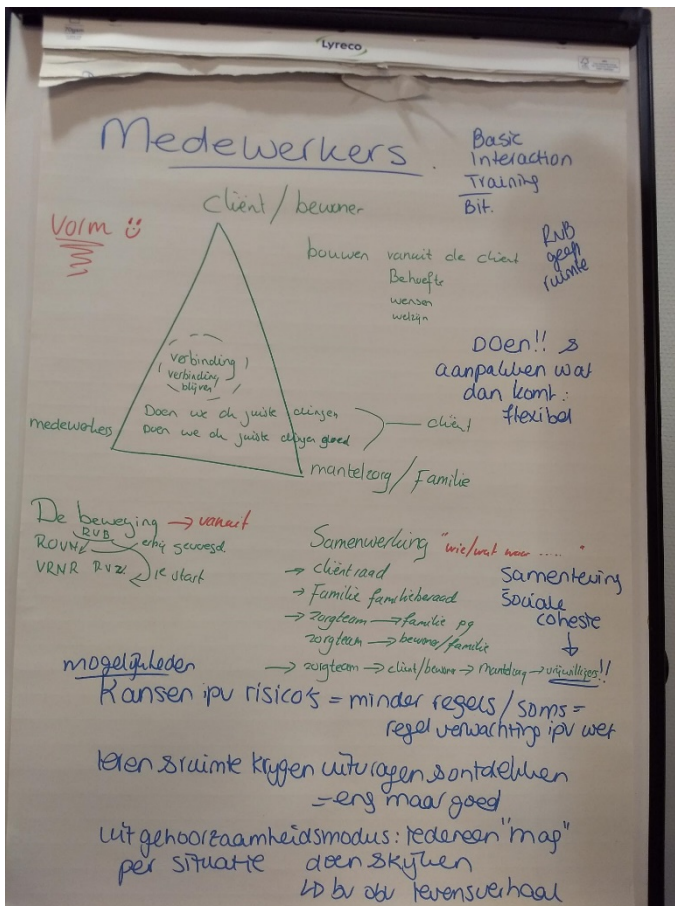 Lyreco
Medewerkers.
Basic
Interaction
Training
Bit.
cliënt / bewoner
Vorm
bouwen vanuit de cliënt
Behoefte
wensen
welzijn
RvB
geen
ruimte
verbinding
verbinding
blijven
DOEN!! &
aanpakken wat
dan komt:
flexibel
Doen we de juiste dingen
Doen we de juiste dingen goed
cliënt
medewerkers
mantelzorg / Familie
De beweging → vanuit
RVB
ROVN erbij gevoegd.
VRNR RVZ 1e start
Samenwerking "wie/wat waar ..... "
→ cliëntraad
→ Familie familieberaad
→ zorgteam → familie pg
zorgteam → bewoner/familie
→ zorgteam → client/bewoner → mantelzorg → vrijwilligers!!
Samenleving
Sociale
cohesie
mogelijkheden
Kansen ipv risico's = minder regels / soms =
regel verwachting ipv wet
leren & ruimte krijgen uitvragen & ontdekken
= eng maar goed
uit gehoorzaamheidsmodus: Iedereen "mag"
per situatie doen & kijken
↳ bv obv levensverhaal